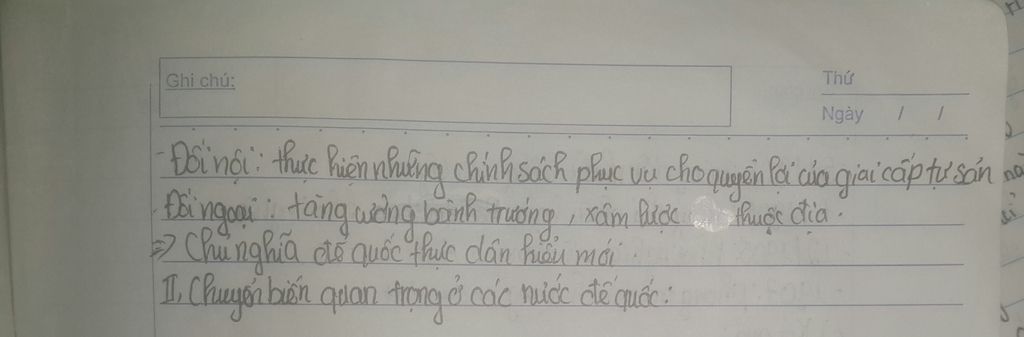 Ghi chú:
Thứ
Ngày / /
- Đối nội: thực hiện những chính sách phục vụ cho quyền lợi của giai cấp tư sản
- Đối ngoại: tăng cường bành trướng, xâm lược thuộc địa.
=> Chủ nghĩa đế quốc thực dân kiểu mới.
II, Chuyển biến quan trọng ở các nước đế quốc: